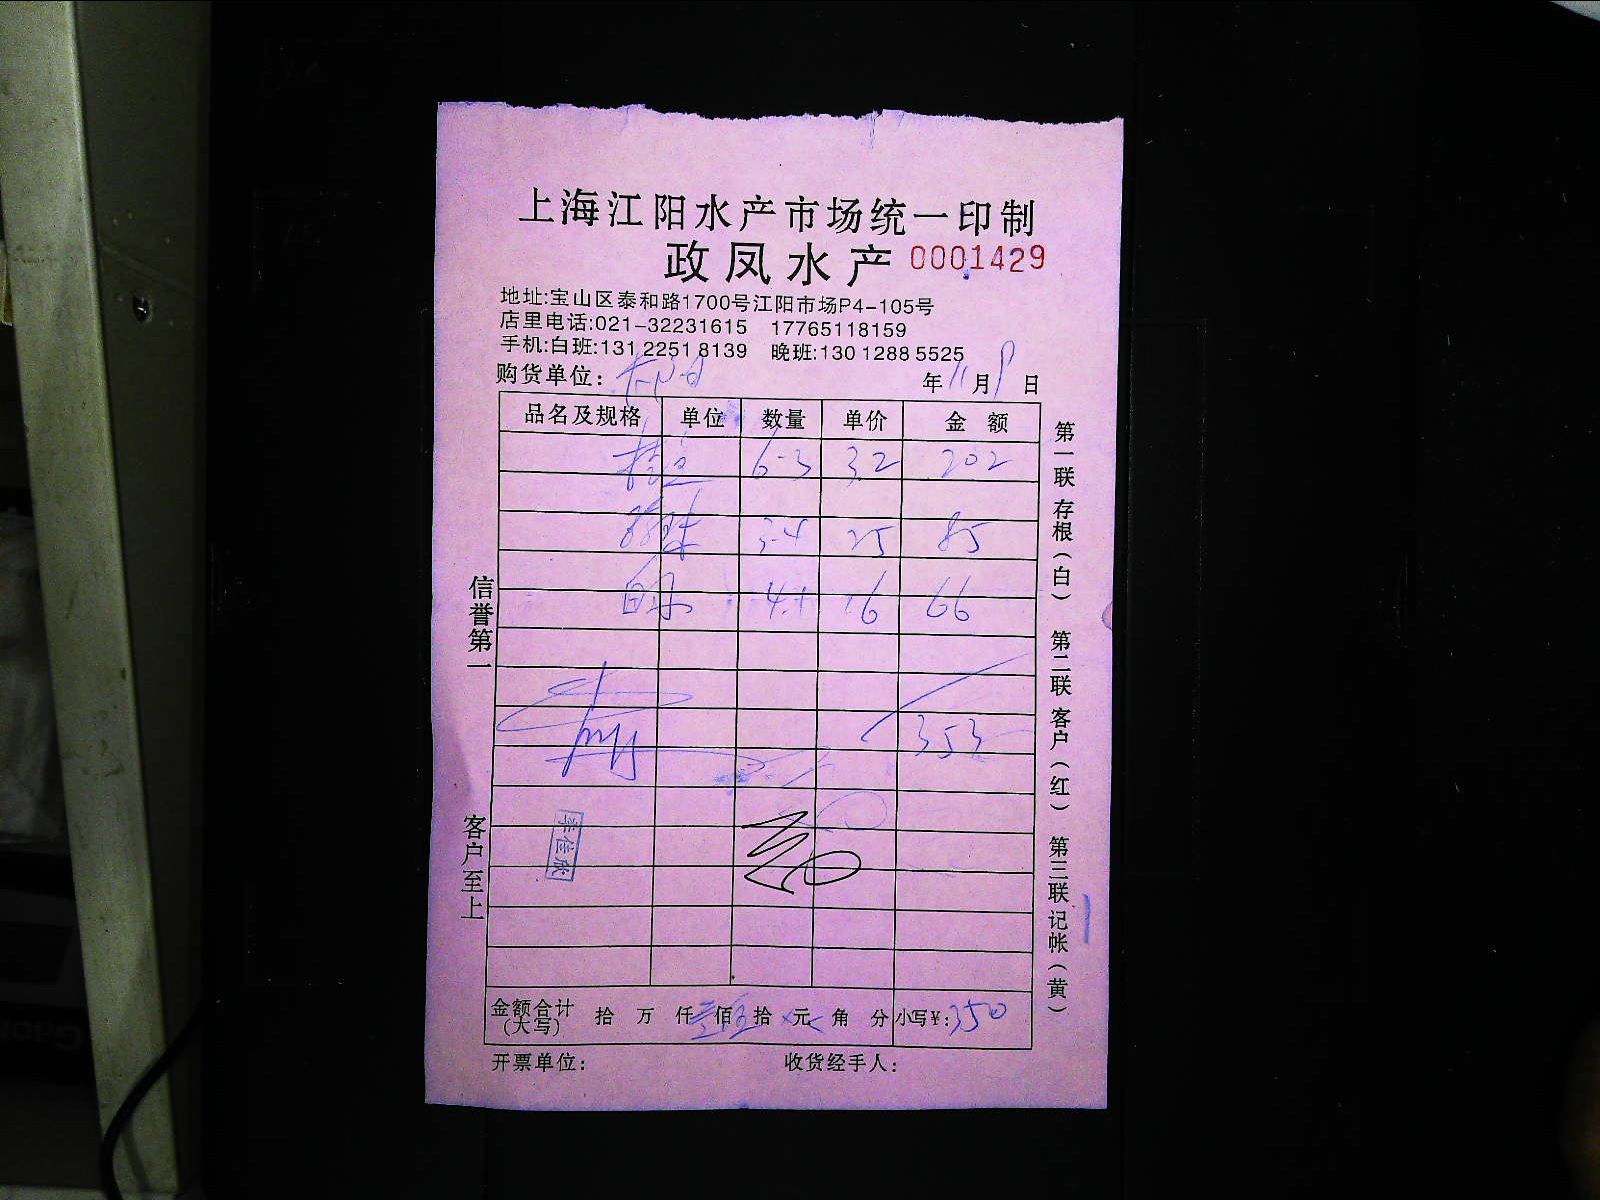 上海江阳水产市场统一印制
政凤水产 0001429
地址:宝山区泰和路1700号江阳市场P4-105号
店里电话:021-32231615 17765118159
手机:白班:131 2251 8139 晚班:130 1288 5525
购货单位: 年 11 月 日
品名及规格 单位 数量 单价 金额
6-3 32 202
3-4 25 85
4.1 16 66
353
李佳欣
金额合计(大写) 拾 万 仟 叁 佰 伍 拾 元 角 分 小写¥:350
开票单位: 收货经手人:
信誉第一
客户至上
第一联 存根(白) 第二联 客户(红) 第三联 记帐(黄)